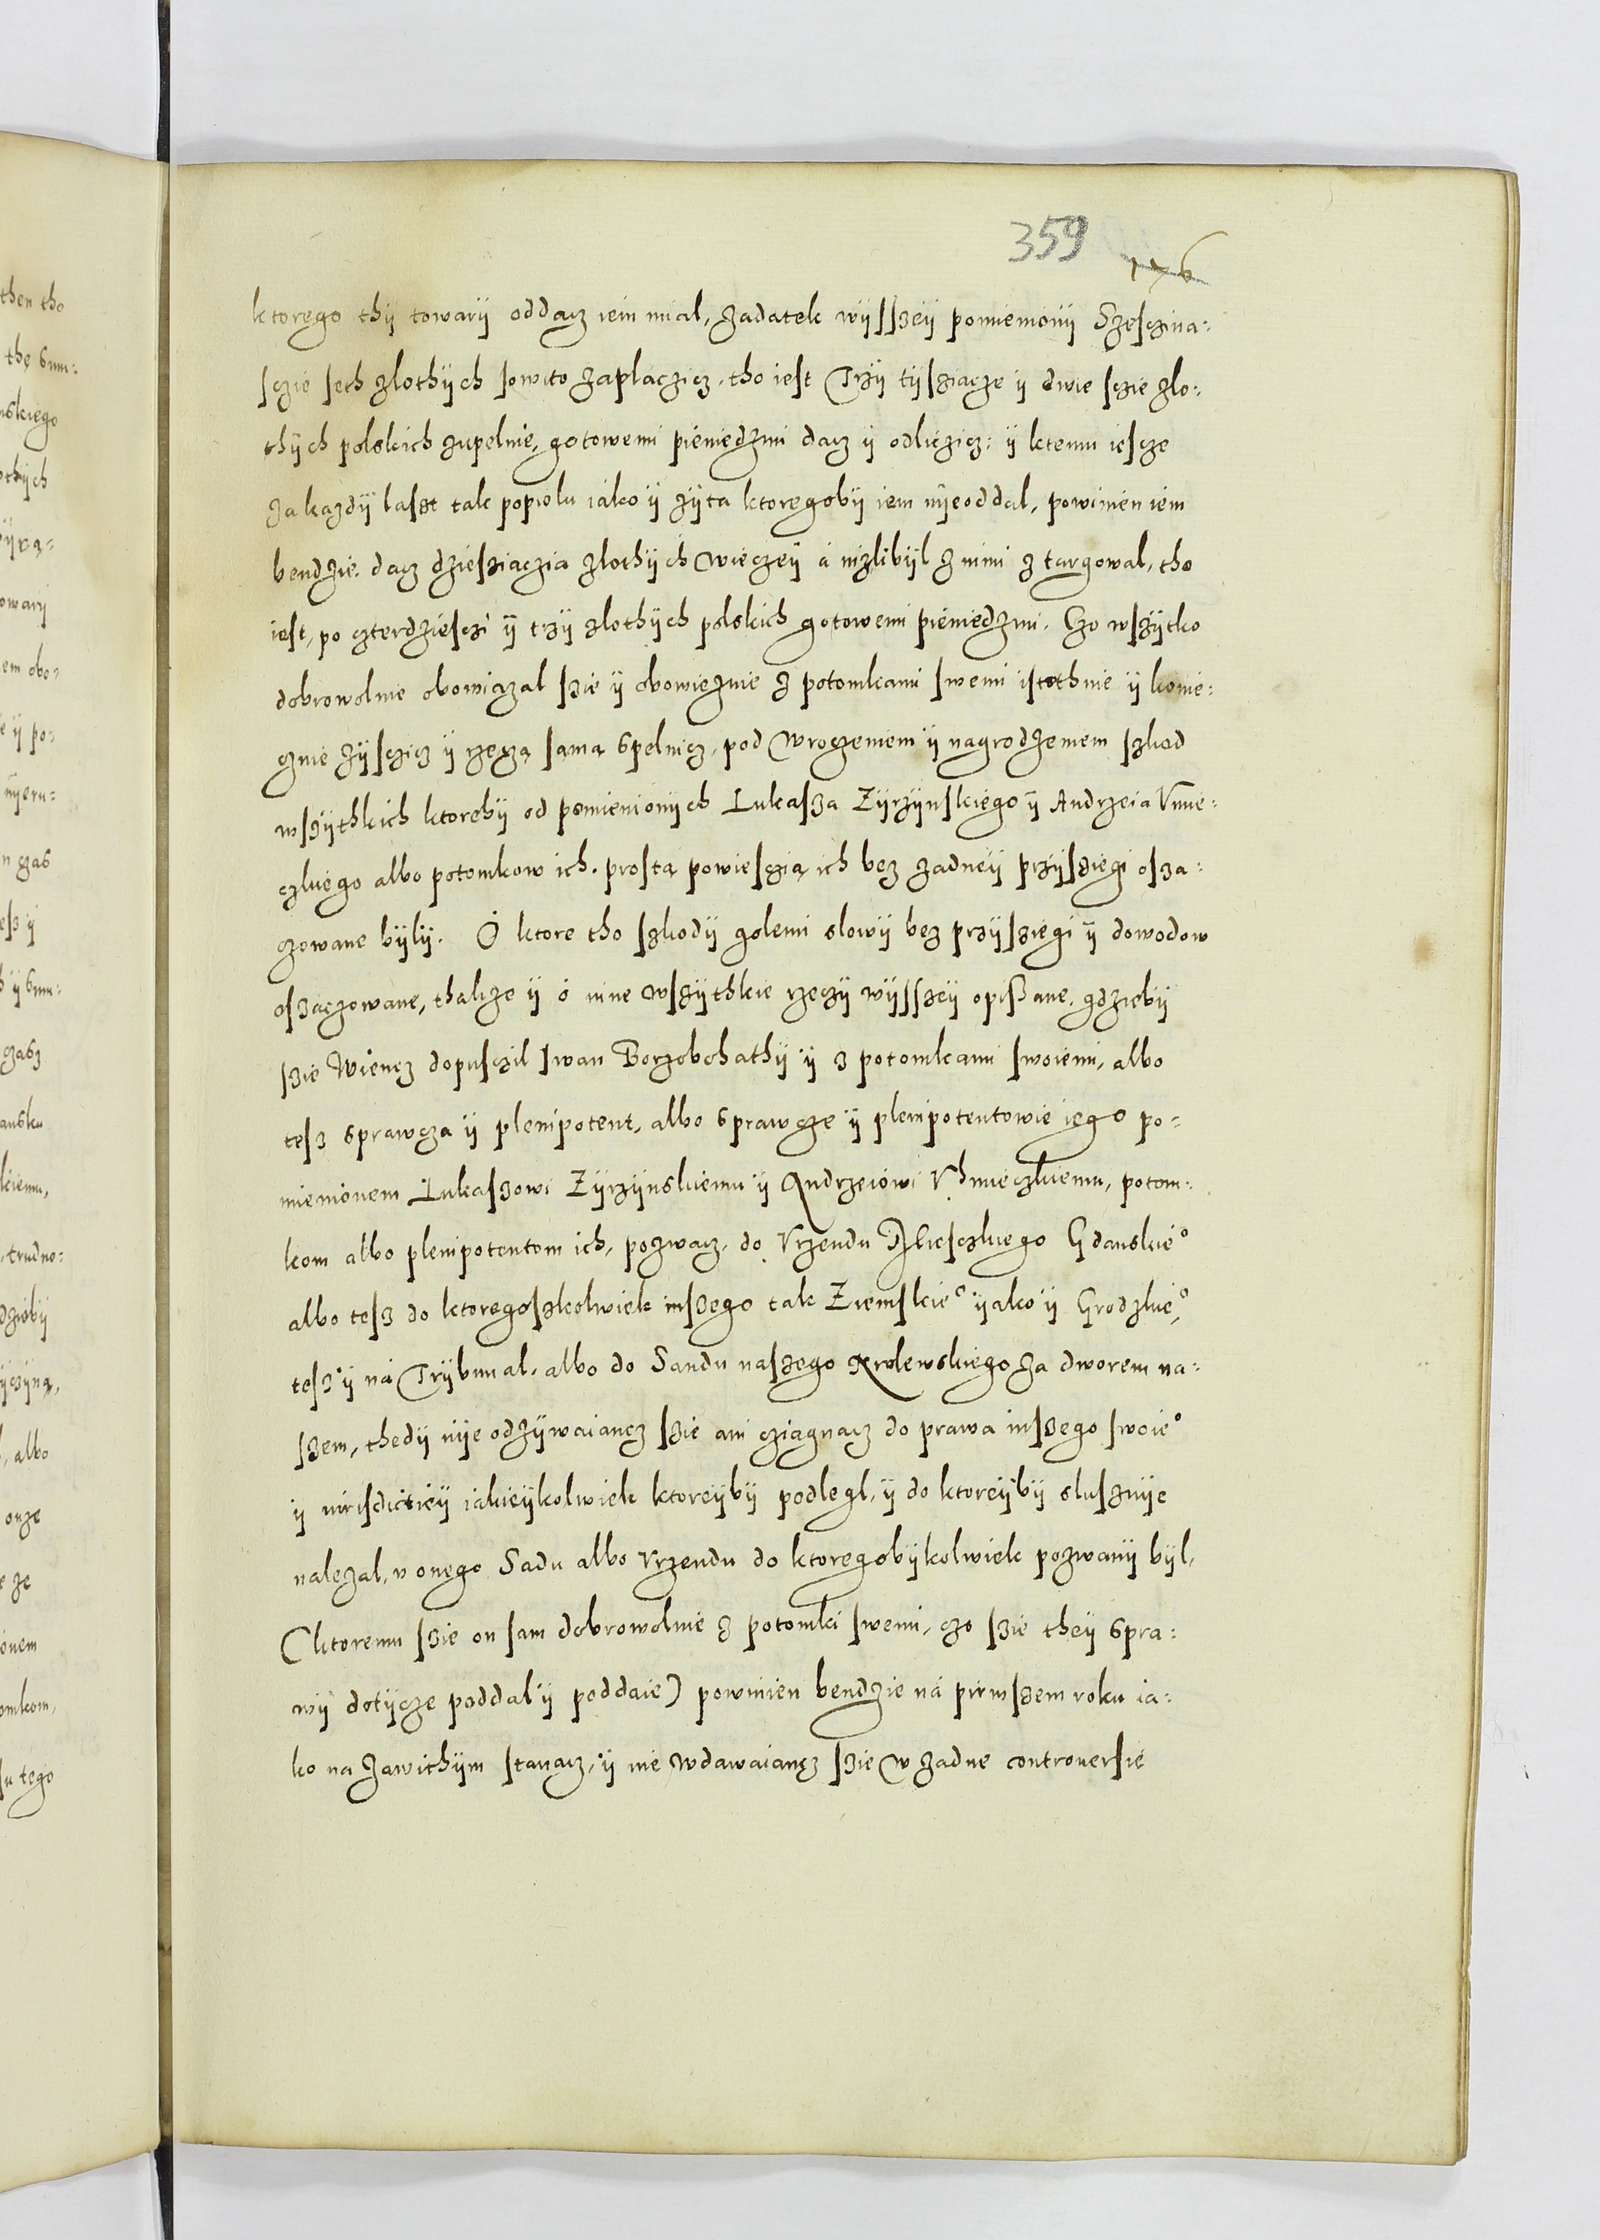 359 176
ktorego thÿ towarÿ oddacz iem mial, zadatek wÿsszeÿ pomienionÿ Szescźina-
scźie seth zlothÿch sowito zaplaczicz, tho iest Trzÿ tÿsziącze ÿ dwie scźie zlo-
thÿch polskich zupelnie, gotowemi pieniedzmi dacz ÿ odliczicz: ÿ ktemu iescze
za kazdÿ lasst tak popiolu iako ÿ zÿta ktoregobÿ iem nÿeoddal, powinien iem
bendzie dacz dziesziączia zlothÿch wieczeÿ á nizlibÿl z nimi ztargowal, tho
iest, po czterdziesczi ÿ trzÿ zlothÿch polskich gotowemi pieniedzmi. Czo wszÿtko
dobrowolnie obowiązal szie ÿ obowieznie z potomkami swemi istothnie ÿ konie-
cznie zÿscicz ÿ rzeczą samą spelnicz, pod wroczeniem ÿ nagrodzeniem szkod
wszÿthkich ktorebÿ od pomienionÿch Lukasza Zÿrzÿnskiego ÿ Andrzeia Vmie-
czkiego albo potomkow ich, prostą powiesczią ich bez zadneÿ przÿsziegi osza-
czowane bÿlÿ. O ktore tho szkodÿ golemi slowÿ bez przÿsziegi ÿ dowodow
oszaczowane, thakze ÿ ó inne wszÿthkie rzeczÿ wÿsszeÿ opissane, gdziebÿ
szie Wiencz dopusczil Iwan Borzobohathÿ ÿ z potomkami swoiemi, albo
tesz sprawcza ÿ plenipotent, albo sprawcze ÿ plenipotentowie iego po-
mienionem Lukaszowi Zÿrzÿnskiemu ÿ Andrzeiowi Vhmieczkiemu, potom-
kom albo plenipotentom ich, pozwacz, do Vrzendu Mieisczkiego Gdanskie°
albo tesz do ktoregoszkolwiek inszego tak Ziemskie° ÿako ÿ Grodzkie°,
tesz ÿ ná Trÿbunal, albo do Sandu naszego Krolewskiego za dworem na-
szem, thedÿ nÿe odzÿwaiancz szie ani cziągnacz do prawa inszego swoie°
ÿ iurisdictieÿ iakieÿkolwiek ktoreÿbÿ podlegl, ÿ do ktoreÿbÿ slusznÿe
nalezal, v onego Sadu albo Vrzendu do ktoregobÿkolwiek pozwanÿ bÿl,
(ktoremu szie on sam dobrowolnie z potomki swemi, czo szie theÿ spra-
wÿ dotÿcze poddal ÿ poddaie) powinien bendzie ná pirwszem roku ia-
ko na zawithÿm stanacz, ÿ nie wdawaiancz szie w zadne controuersie